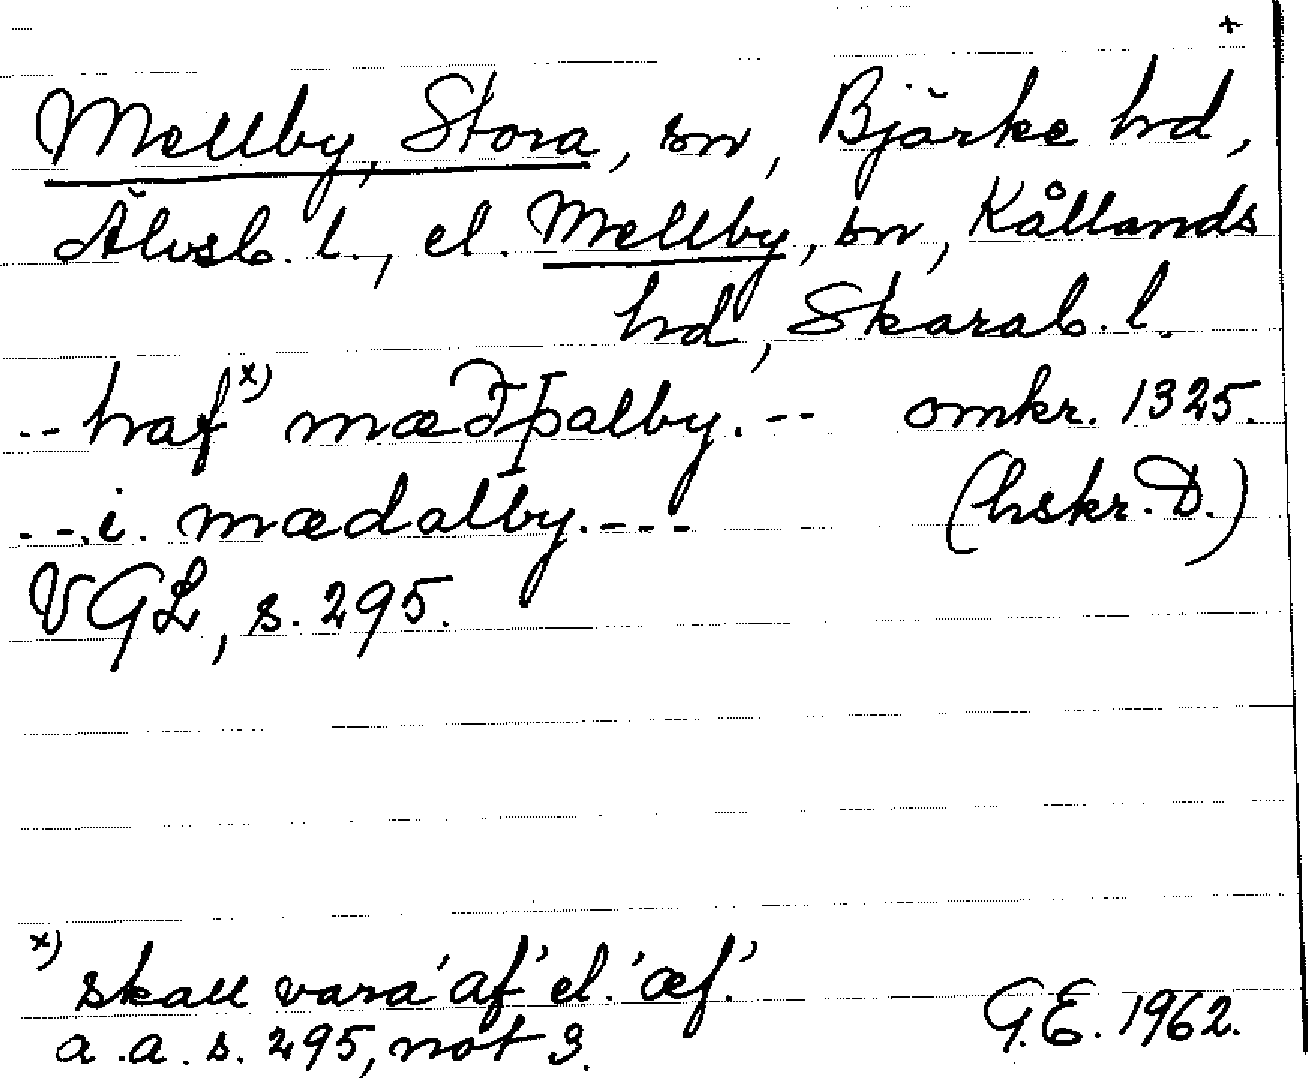 +
Mellby, Stora, sn, Bjärke hd,
Älvsb. l., el. Mellby, sn, Kållands
hd, Skarab. l.
-- haf x) mæðþalby. -- omkr. 1325.
--.i. mædalby.--- (hskr. D.)
VGL, s. 295.
x) skall vara 'af' el. 'æf.'
a.a. s. 295, not 3. G.E. 1962.